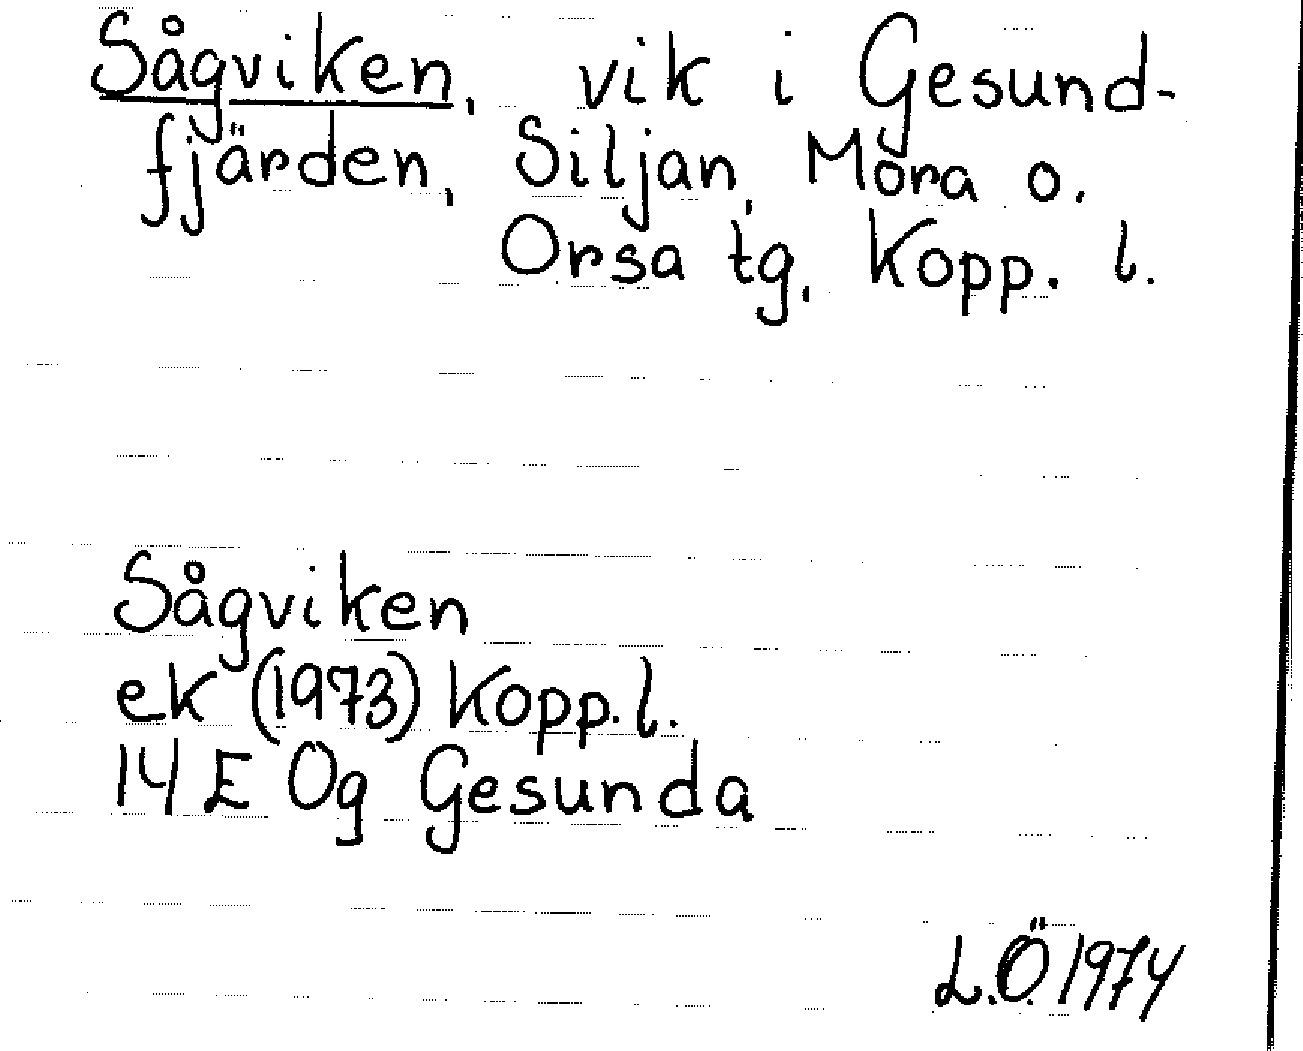 Sågviken, vik i Gesund-
fjärden, Siljan, Mora o.
Orsa tg, Kopp. l.
Sågviken
ek (1973) Kopp. l.
14 E 0g Gesunda
L.Ö 1974